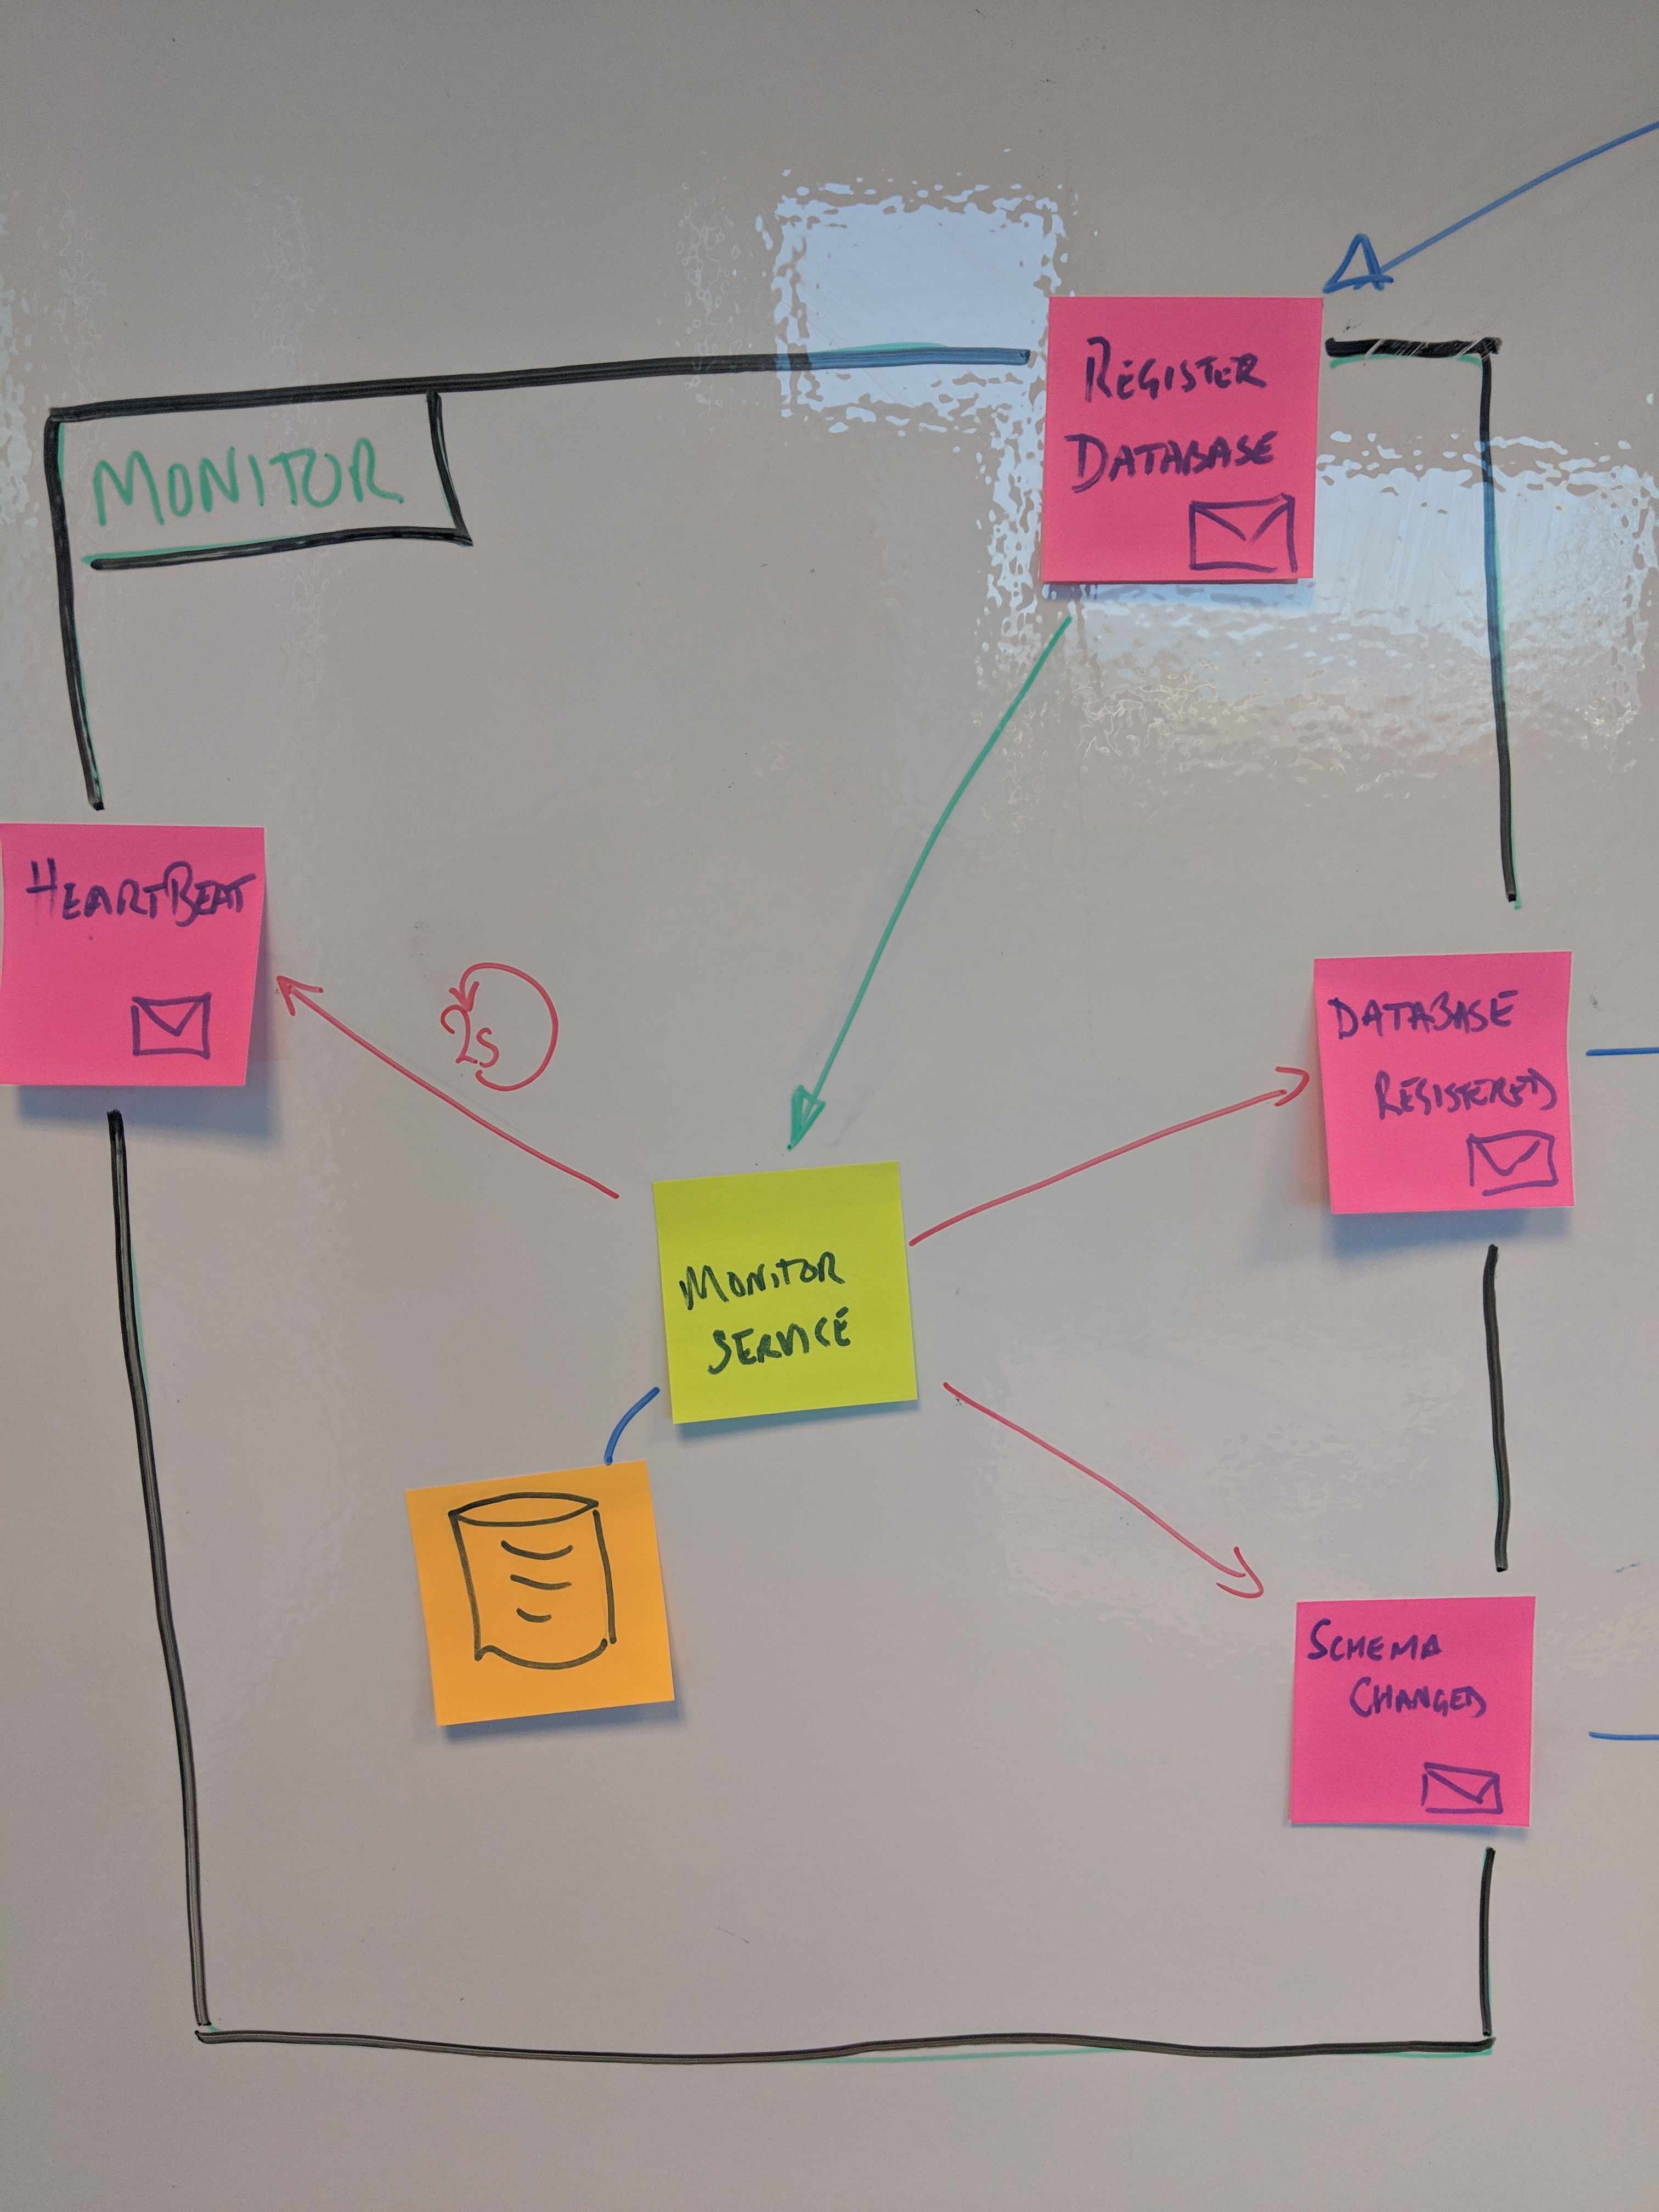 REGISTER
DATABASE
MONITOR
HEARTBEAT
2s
DATABASE
REGISTERED
MONITOR
SERVICE
SCHEMA
CHANGED